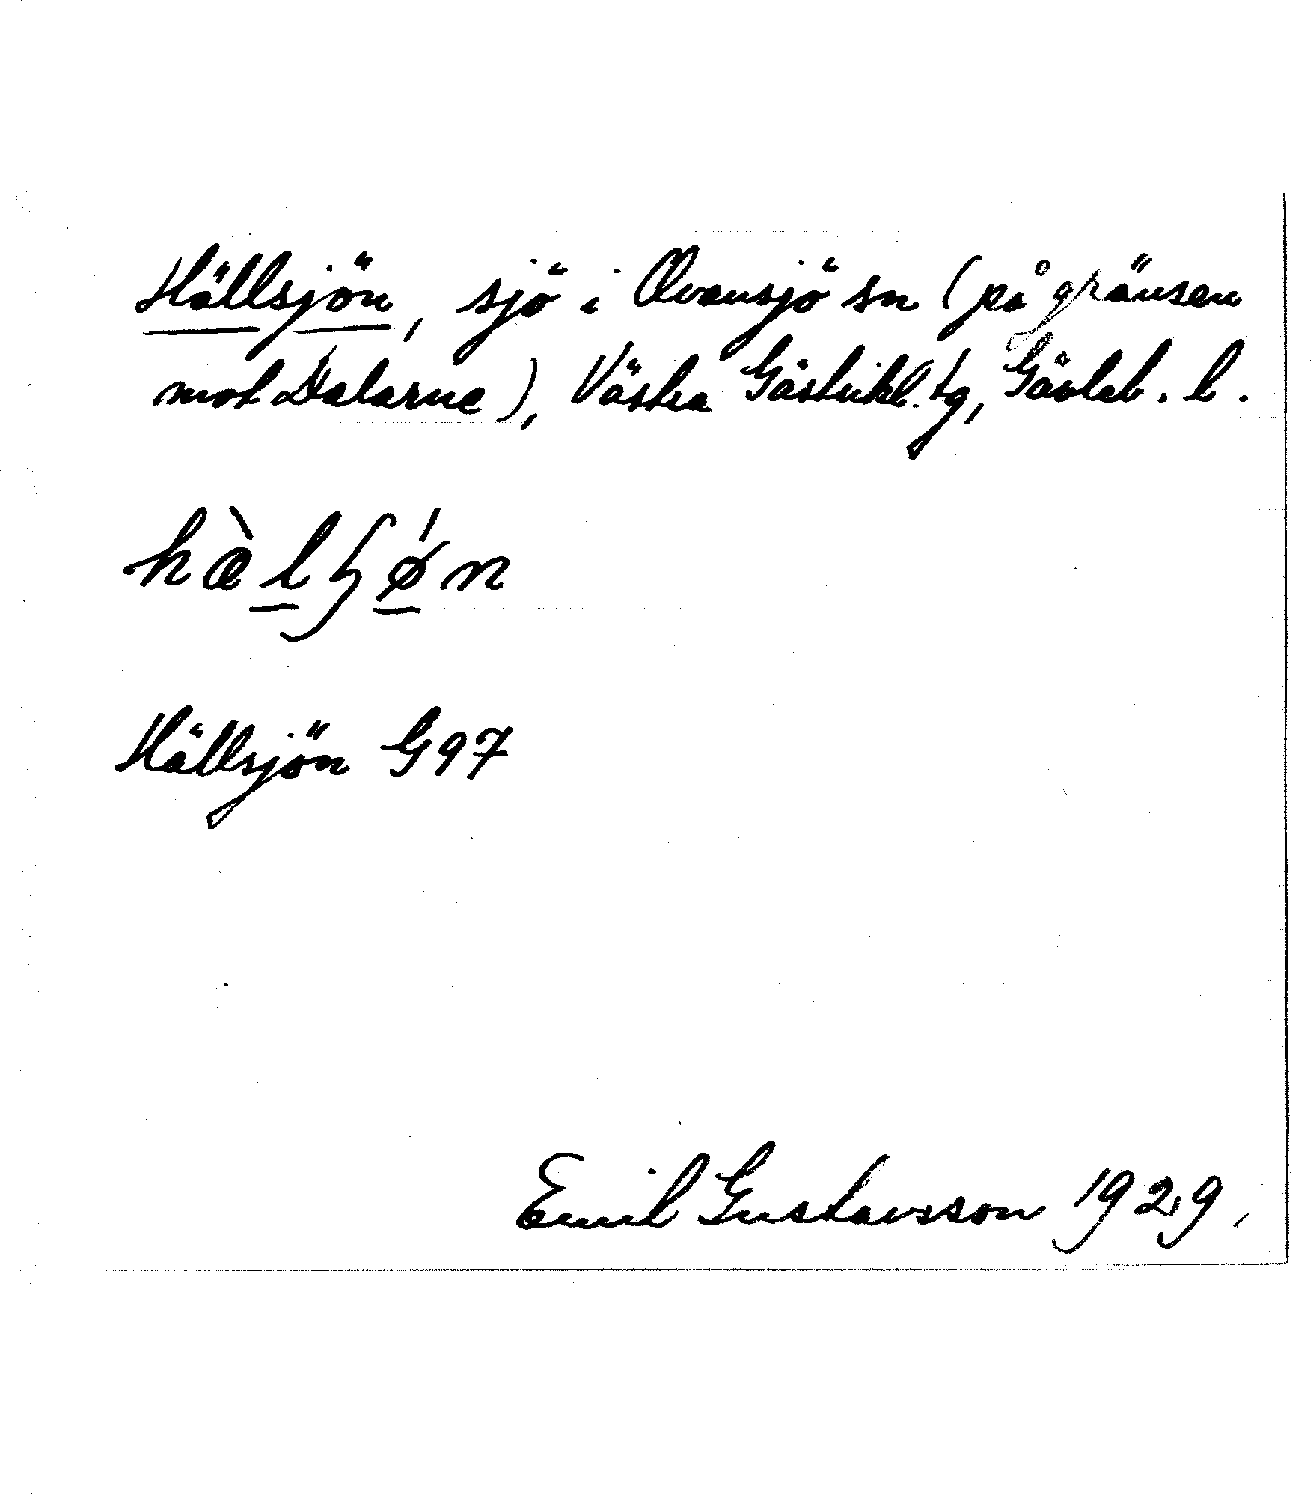 Hällsjön, sjö i Ovansjö sn (på gränsen
mot Dalarne), Västra Gästrikl. tg, Gävleb. l.
hæ̀lꞩǿn
Hällsjön G97
Emil Gustavsson 1929.